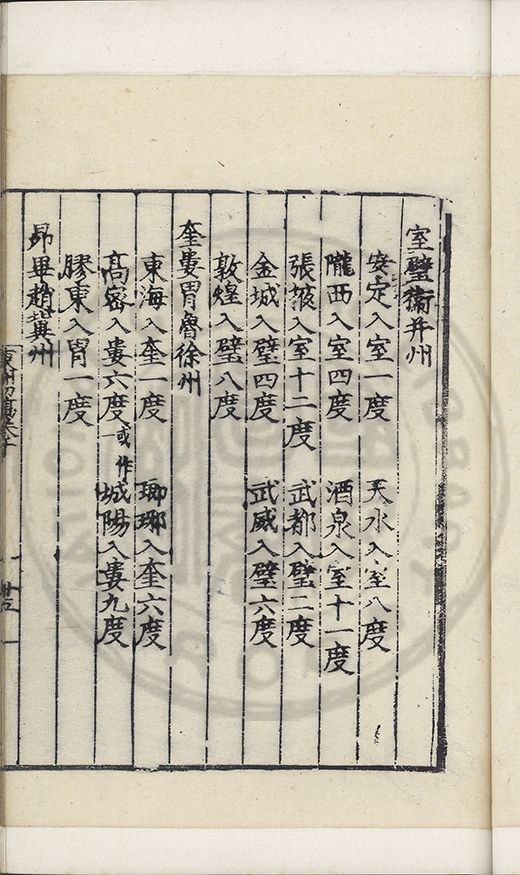 室璧衞并州
安定入室一度　天水入室八度
隴西入室四度　酒泉入室十一度
張掖入室十二度　武都入璧二度
金城入璧四度　武威入璧六度
敦煌入璧八度
奎婁胃魯徐州
東海入奎一度　琅琊入奎六度
高密入婁六度或作城陽入婁九度
膠東入胃一度
昴畢趙冀州